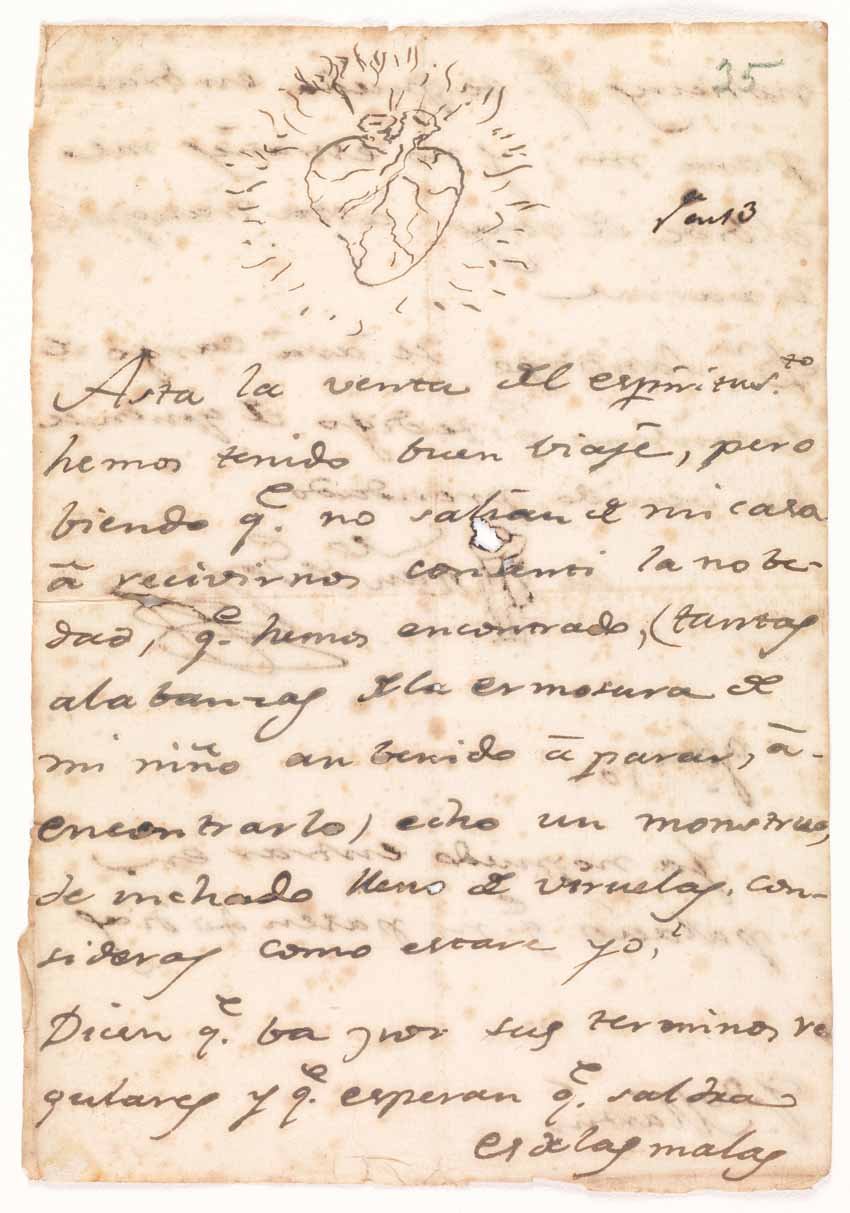 25
Asta la venta del espiritu s.to
hemos tenido buen viaje, pero
biendo q.e no salian de mi casa
â recivirnos consenti la nobe-
dad, q.e hemos encontrado, (tantas
alabanzas de la ermosura de
mi niño an benido â parar, â-
encontrarlo) echo un monstruo,
de inchado lleno de viruelas. con-
sideras como estare yo,
Dicen q.e ba por sus terminos re
gulares y q.e esperan q.e saldra
es de las malas